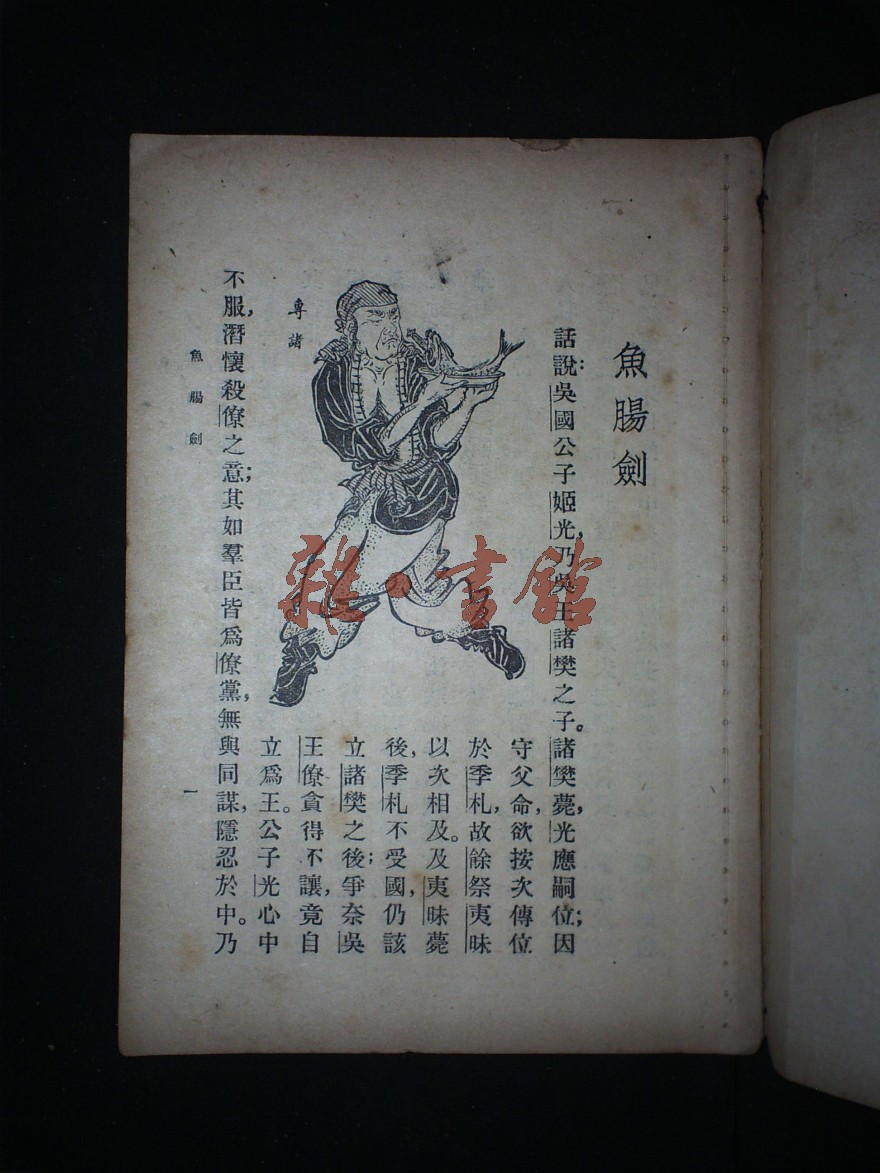 魚腸劍
話說：吳國公子姬光，乃吳王諸樊之子。諸樊薨，光應嗣位；因
守父命，欲按次傳位
於季札，故餘祭夷昧
以次相及。及夷昧薨
後，季札不受國，仍該
立諸樊之後；爭奈吳
王僚貪得不讓，竟自
立爲王。公子光心中
不服，潛懷殺僚之意；其如羣臣皆爲僚黨，無與同謀，隱忍於中。乃
專諸
魚腸劍
一
雜·書館